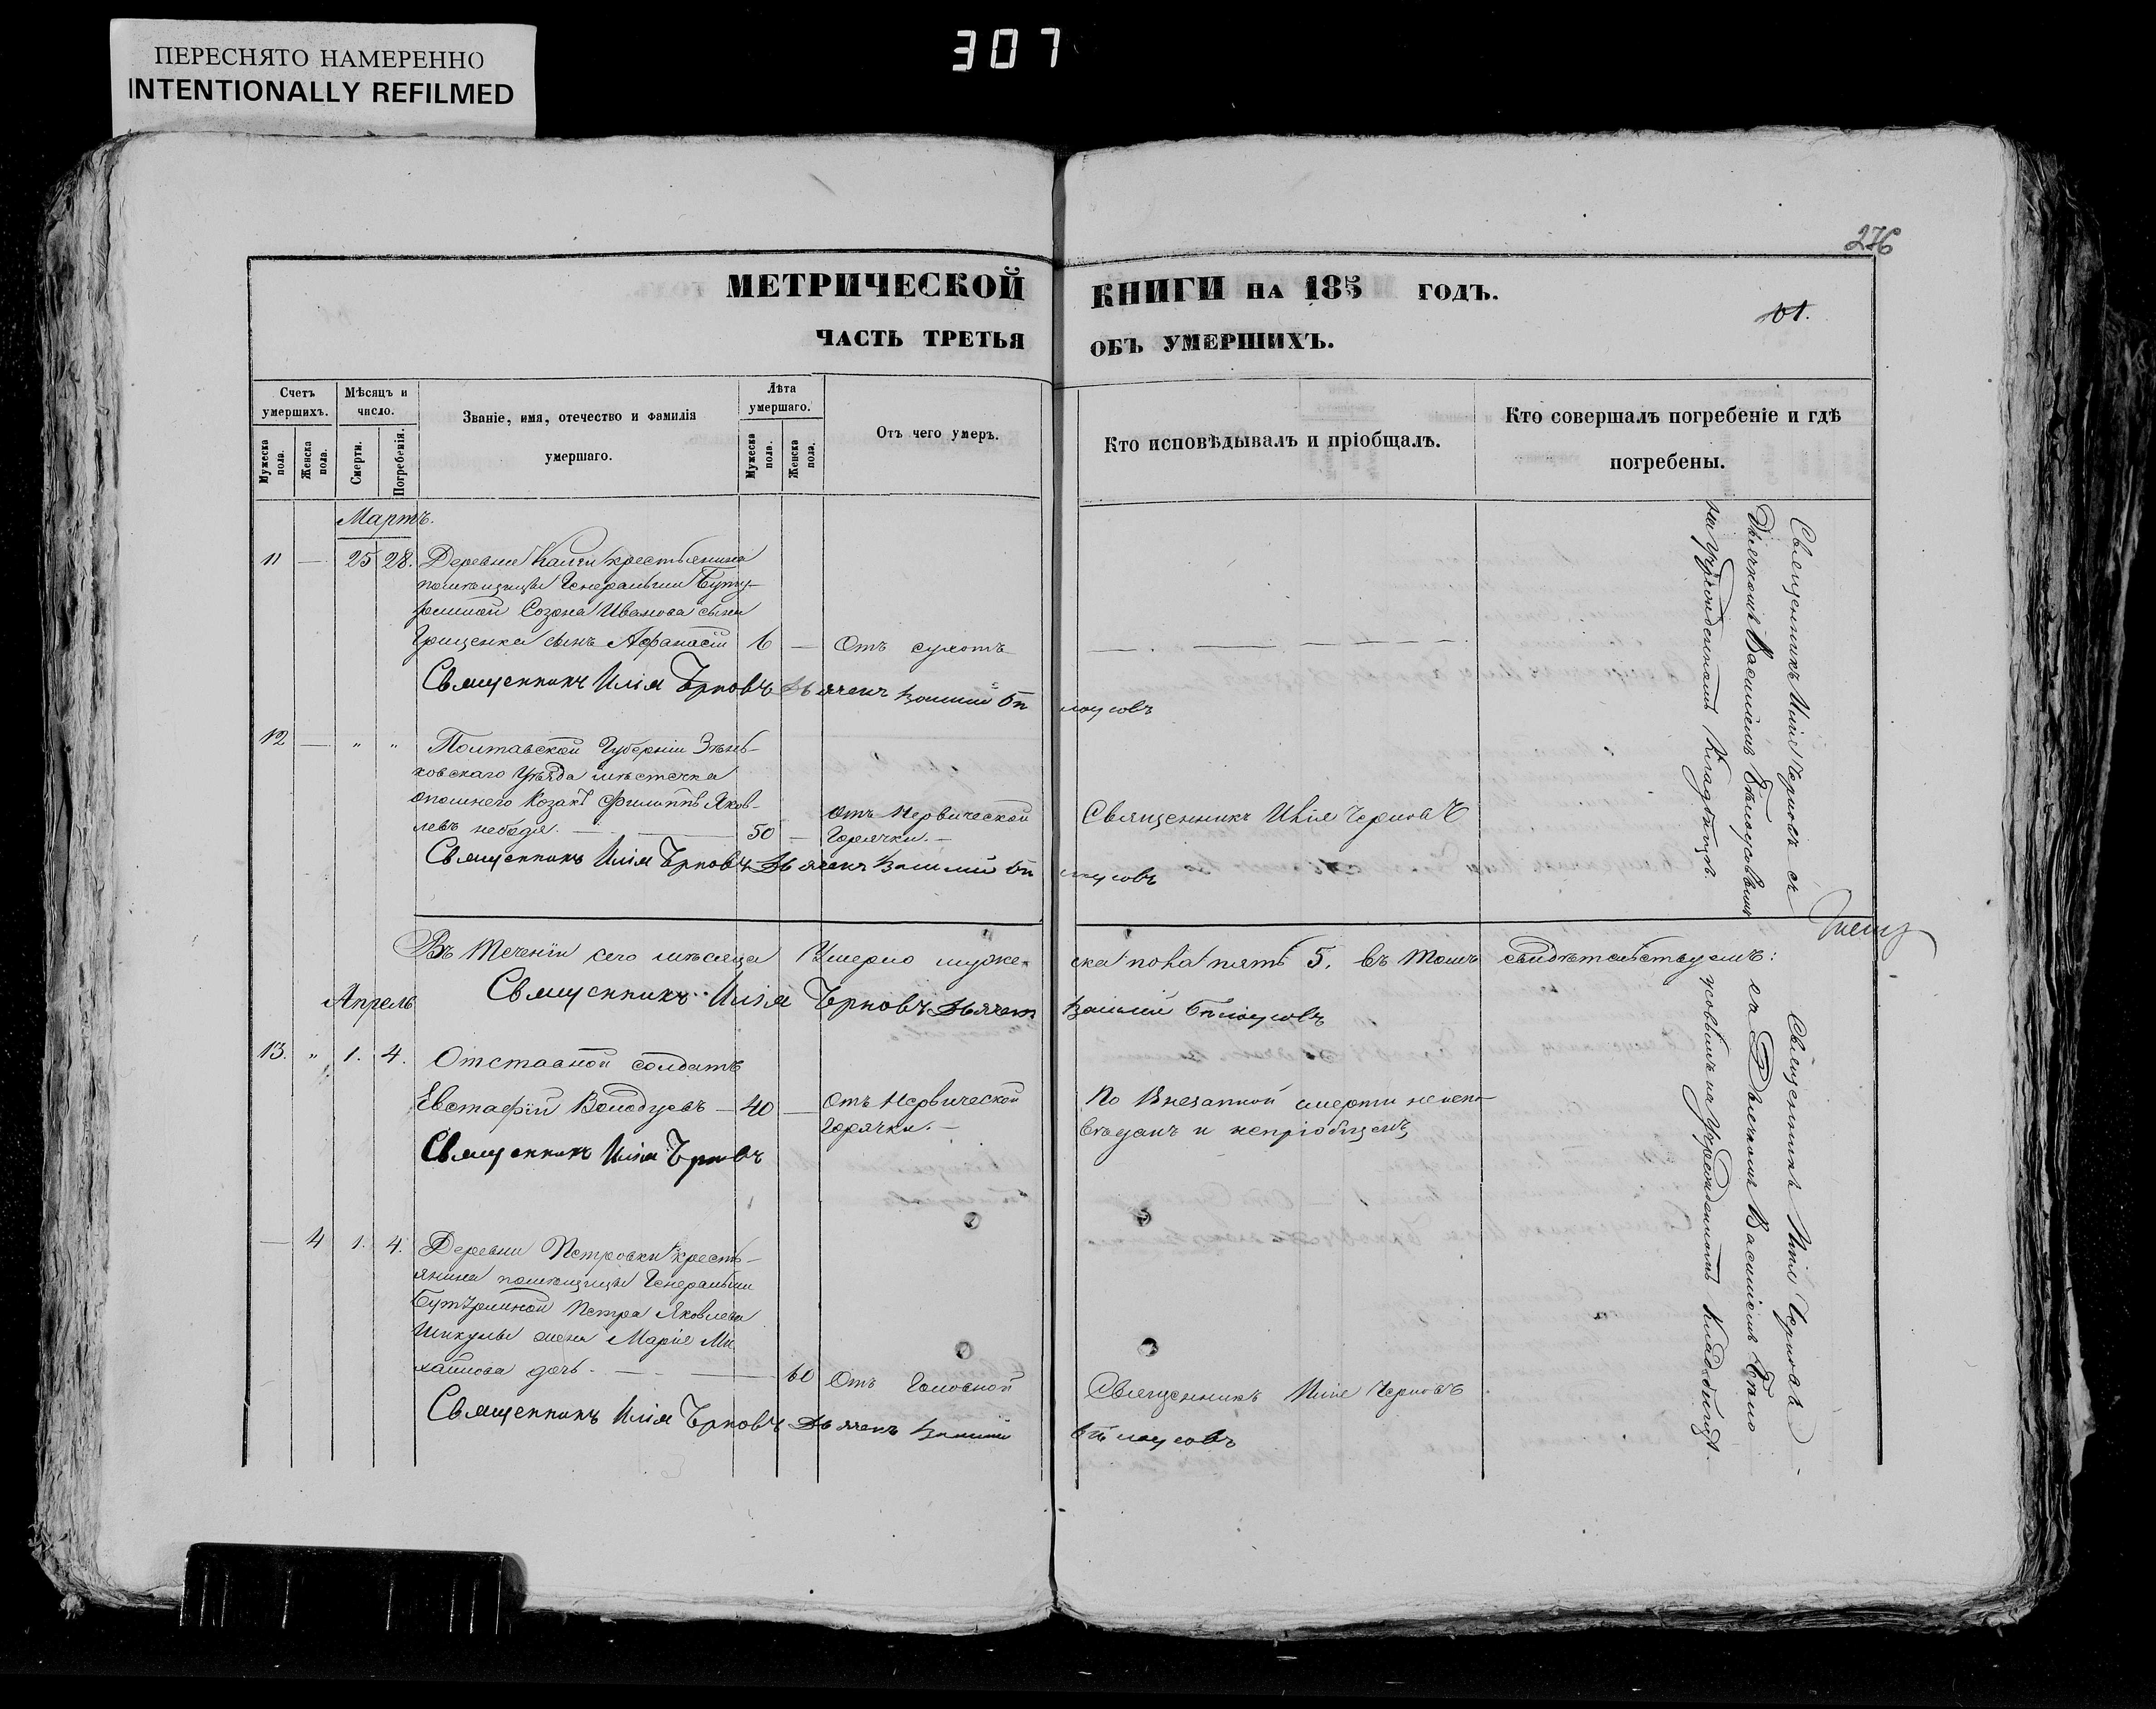 ПЕРЕСНЯТО НАМЕРЕННО
INTENTIONALLY REFILMED
307
276
МЕТРИЧЕСКОЙ КНИГИ НА 185 ГОДЪ.
101.
ЧАСТЬ ТРЕТЬЯ ОБЪ УМЕРШИХЪ.
Счетъ умершихъ.
Мужеска пола.
Женска пола.
Мѣсяцъ и число.
Смерти.
Погребенія.
Званіе, имя, отечество и фамилія умершаго.
Лѣта умершаго.
Мужеска пола.
Женска пола.
Отъ чего умеръ.
Кто исповѣдывалъ и пріобщалъ.
Кто совершалъ погребеніе и гдѣ погребены.
Мартъ.
11 — 25 28. Деревни крестьянина
помѣщицы Генеральши Бутур-
линой Созона Иванова сына
Грищенка сынъ Афанасій 6 — Отъ сухотъ
Священникъ Илія Черновъ Дьячекъ Василій Бѣлоусовъ
12 — " " Полтавской Губерніи Зѣнь-
ковскаго Уѣзда мѣстечка
Опошнего Козакъ Филиппъ Яков-
левъ небодя. — 50 — Отъ Нервической Горячки. — Священникъ Илія Черновъ
Священникъ Илія Черновъ Дьячекъ Василій Бѣлоусовъ
Священникъ Илія Черновъ съ
Дьячкомъ Василіемъ Бѣлоусовымъ
на Учрежденномъ Кладбищѣ.
Въ Теченіи сего мѣсяца Умерло мужеска пола пять 5. въ томъ свидѣтельствуемъ:
Священникъ Илія Черновъ Дьячекъ Василій Бѣлоусовъ
Апрель
13. " 1. 4. Отставной солдатъ
Евстафій — 40 — Отъ Нервической Горячки. — По Внезапной смерти неиспо-
вѣданъ и непріобщенъ
Священникъ Илія Черновъ
— 4 1. 4. Деревни Петровки кресть-
янина помѣщицы Генеральши
Бутурлиной Петра Яковлева
Шикулы жена Марія Ми
хайлова дочь. — 60 Отъ Головной Священникъ Илія Черновъ
Священникъ Илія Черновъ Дьячекъ Василій Бѣлоусовъ
Священникъ Илія Черновъ
съ Дьячкомъ Василіемъ Бѣло
усовымъ на Учрежденномъ Кладбищѣ.